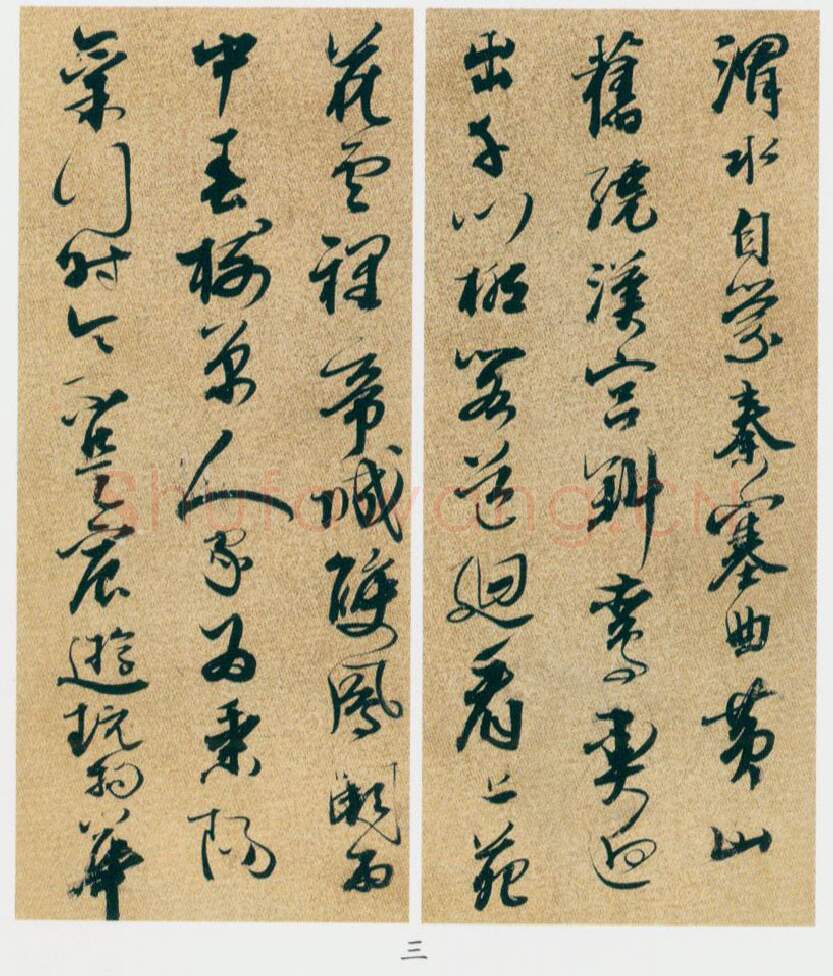 渭水自縈秦塞曲黄山
舊繞漢宮斜鸞輿迥
出千門柳閣道廻看上苑
花雲裡帝城雙鳳闕雨
中春樹萬人家為乘陽
氣行時令不是宸遊玩物華
三
shufawang.CN